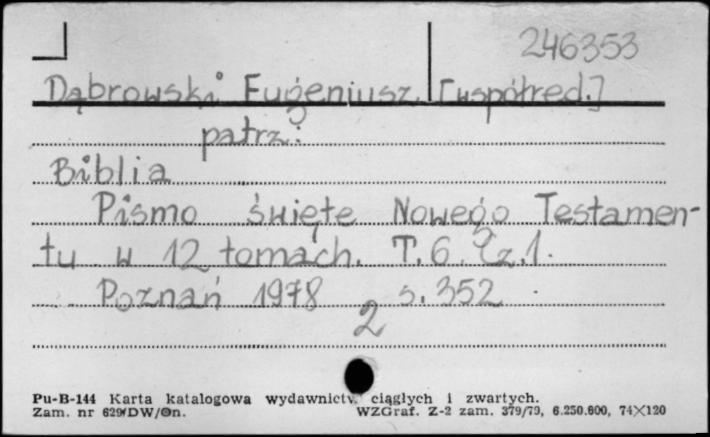 246353
Dąbrowski Eugeniusz. [współred.]
patrz:
Biblia
Pismo święte Nowego Testamen-
tu w 12 tomach. T. 6. Cz. 1.
Poznań 1978 s. 352
2
Pu-B-144 Karta katalogowa wydawnictw ciągłych i zwartych.
Zam. nr 629/DW/On. WZGraf. Z-2 zam. 379/79, 6.250.600, 74×120